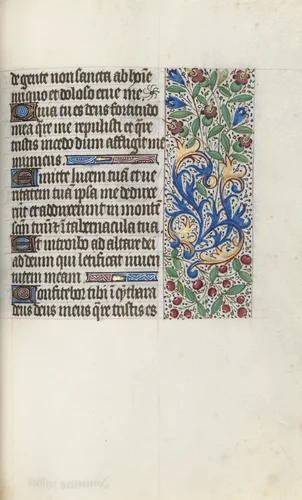 de gente non sancta ab hoi͂e
iniquo et doloso erue me
Quia tu es deus fortitudo
mea q̃re me repulisti et q̃re
tristis incedo dum affligit me
inimicus
Emitte lucem tuã et ve
ritatem tuã ipsa me deduxe
runt et adduxerunt in montẽ
sctm̃ tuũ et ĩ tabernacula tua
Et introibo ad altare dei
ad deum qui letificat iuven
tutem meam
Confitebor tibi ĩ cythara
deus deus meus q̃re tristis es